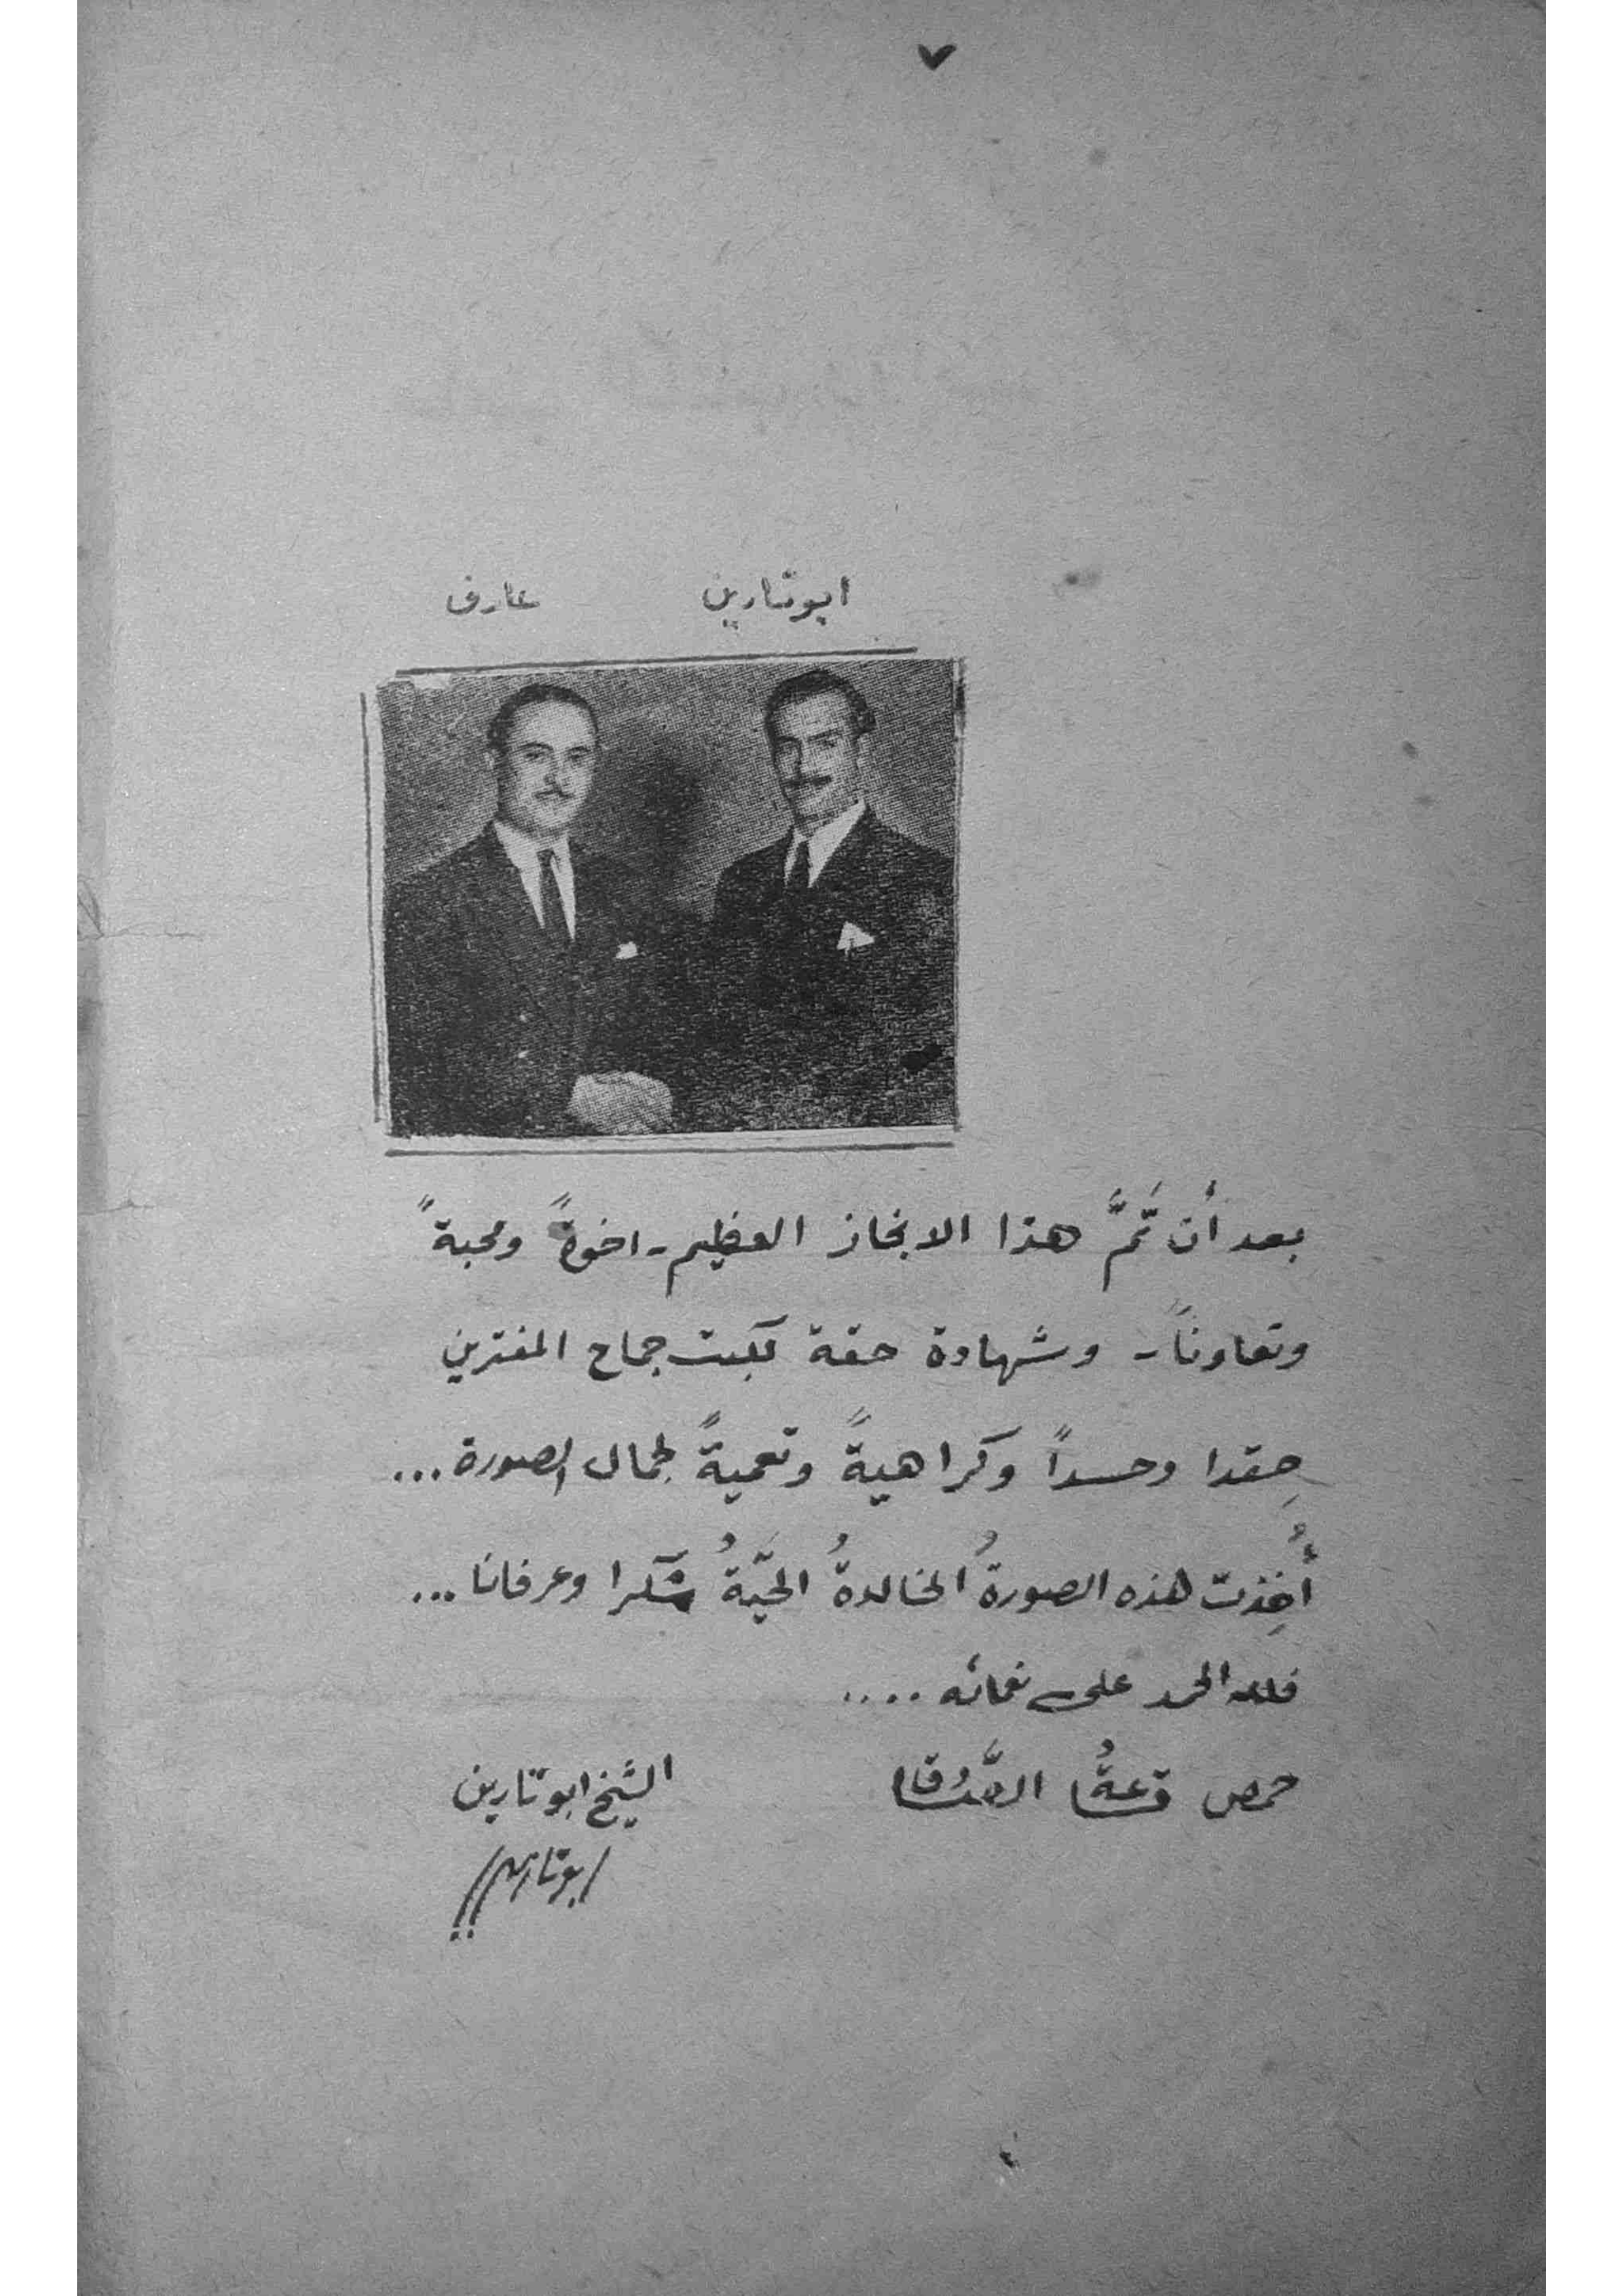 ٧
ابوتارين عارف
بعد أن تمَّ هذا الانجاز العظيم - اخوةً ومحبةً
وتعاوناً - وشهادة حقة تكبت جماح المفترين
حِقدا وحسداً وكراهيةً وتعميةً لجمال الصورة ...
أُخِذت هذه الصورةُ الخالدةُ الحيَّةُ شكرا وعرفانا ...
فلله الحمد على نعمائه ....
حمص الشيخ ابوتارين
ابوتارين